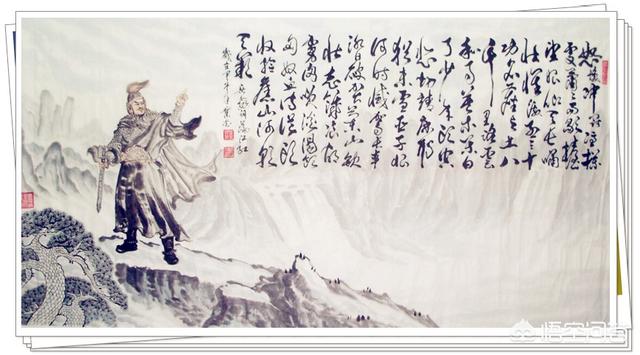 怒发冲冠凭栏
处潇潇雨歇抬
望眼仰天长啸
壮怀激烈三十
功名尘与土八
千里路云
和月莫等闲白
了少年头空
悲切靖康耻
犹未雪臣子恨
何时灭驾长车
踏破贺兰山缺
壮志饥餐胡
虏肉笑谈渴饮
匈奴血待从头
收拾旧山河朝
天阙
岳飞词满江红
岁在甲午年
悟空问答